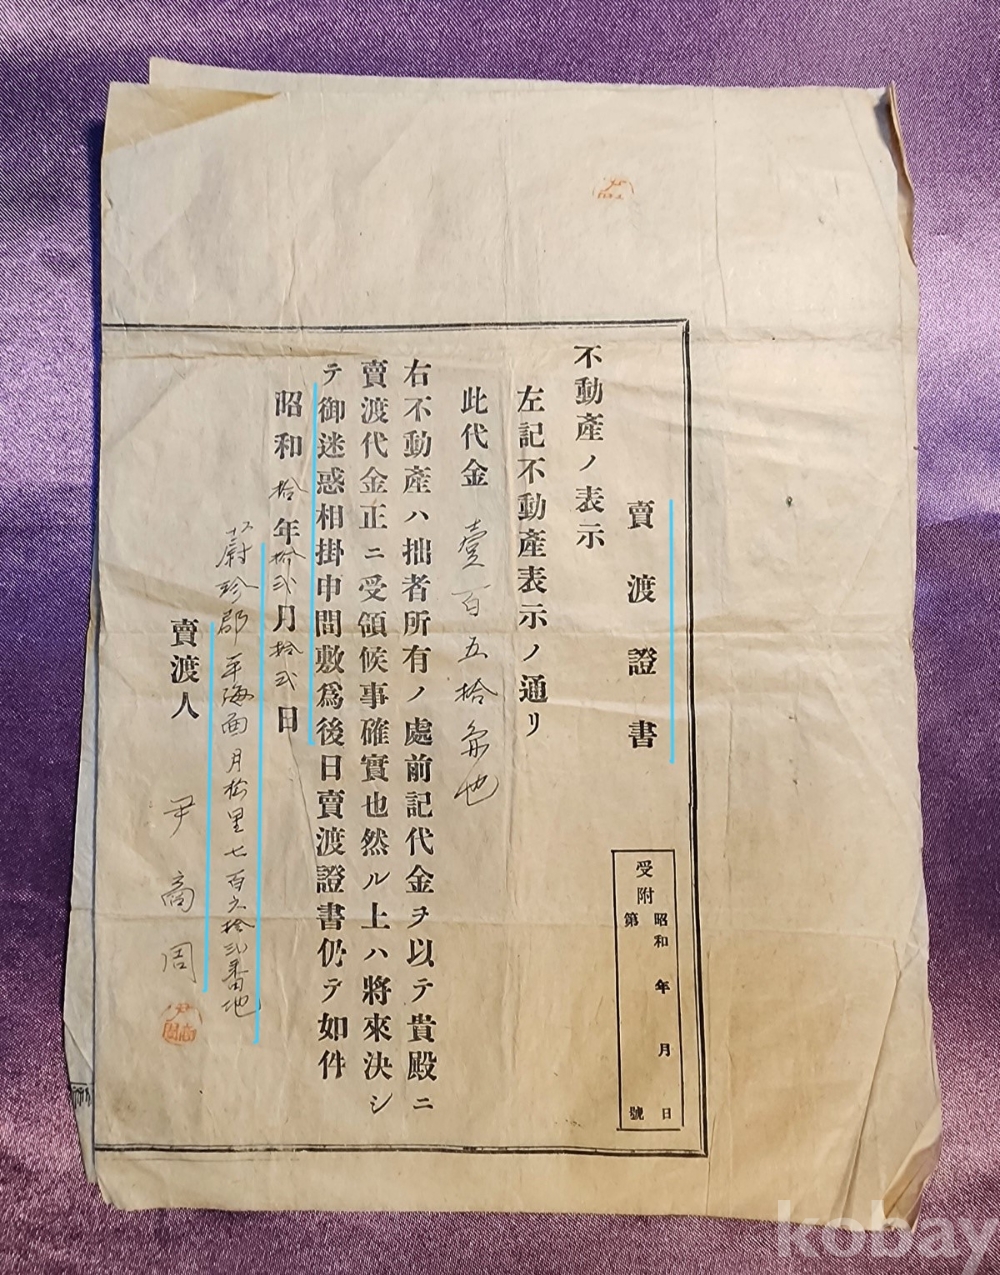 賣渡證書
受附 昭和 年 月 日
第 號
不動產ノ表示
左記不動產表示ノ通リ
此代金 壹百五拾余也
右不動產ハ拙者所有ノ處前記代金ヲ以テ貴殿ニ
賣渡代金正ニ受領候事確實也然ル上ハ將來決シ
テ御迷惑相掛申間敷爲後日賣渡證書仍テ如件
昭和拾年拾弍月拾弍日
蔚珍郡平海面月松里七百六拾弍番地
賣渡人 尹商周
kobay